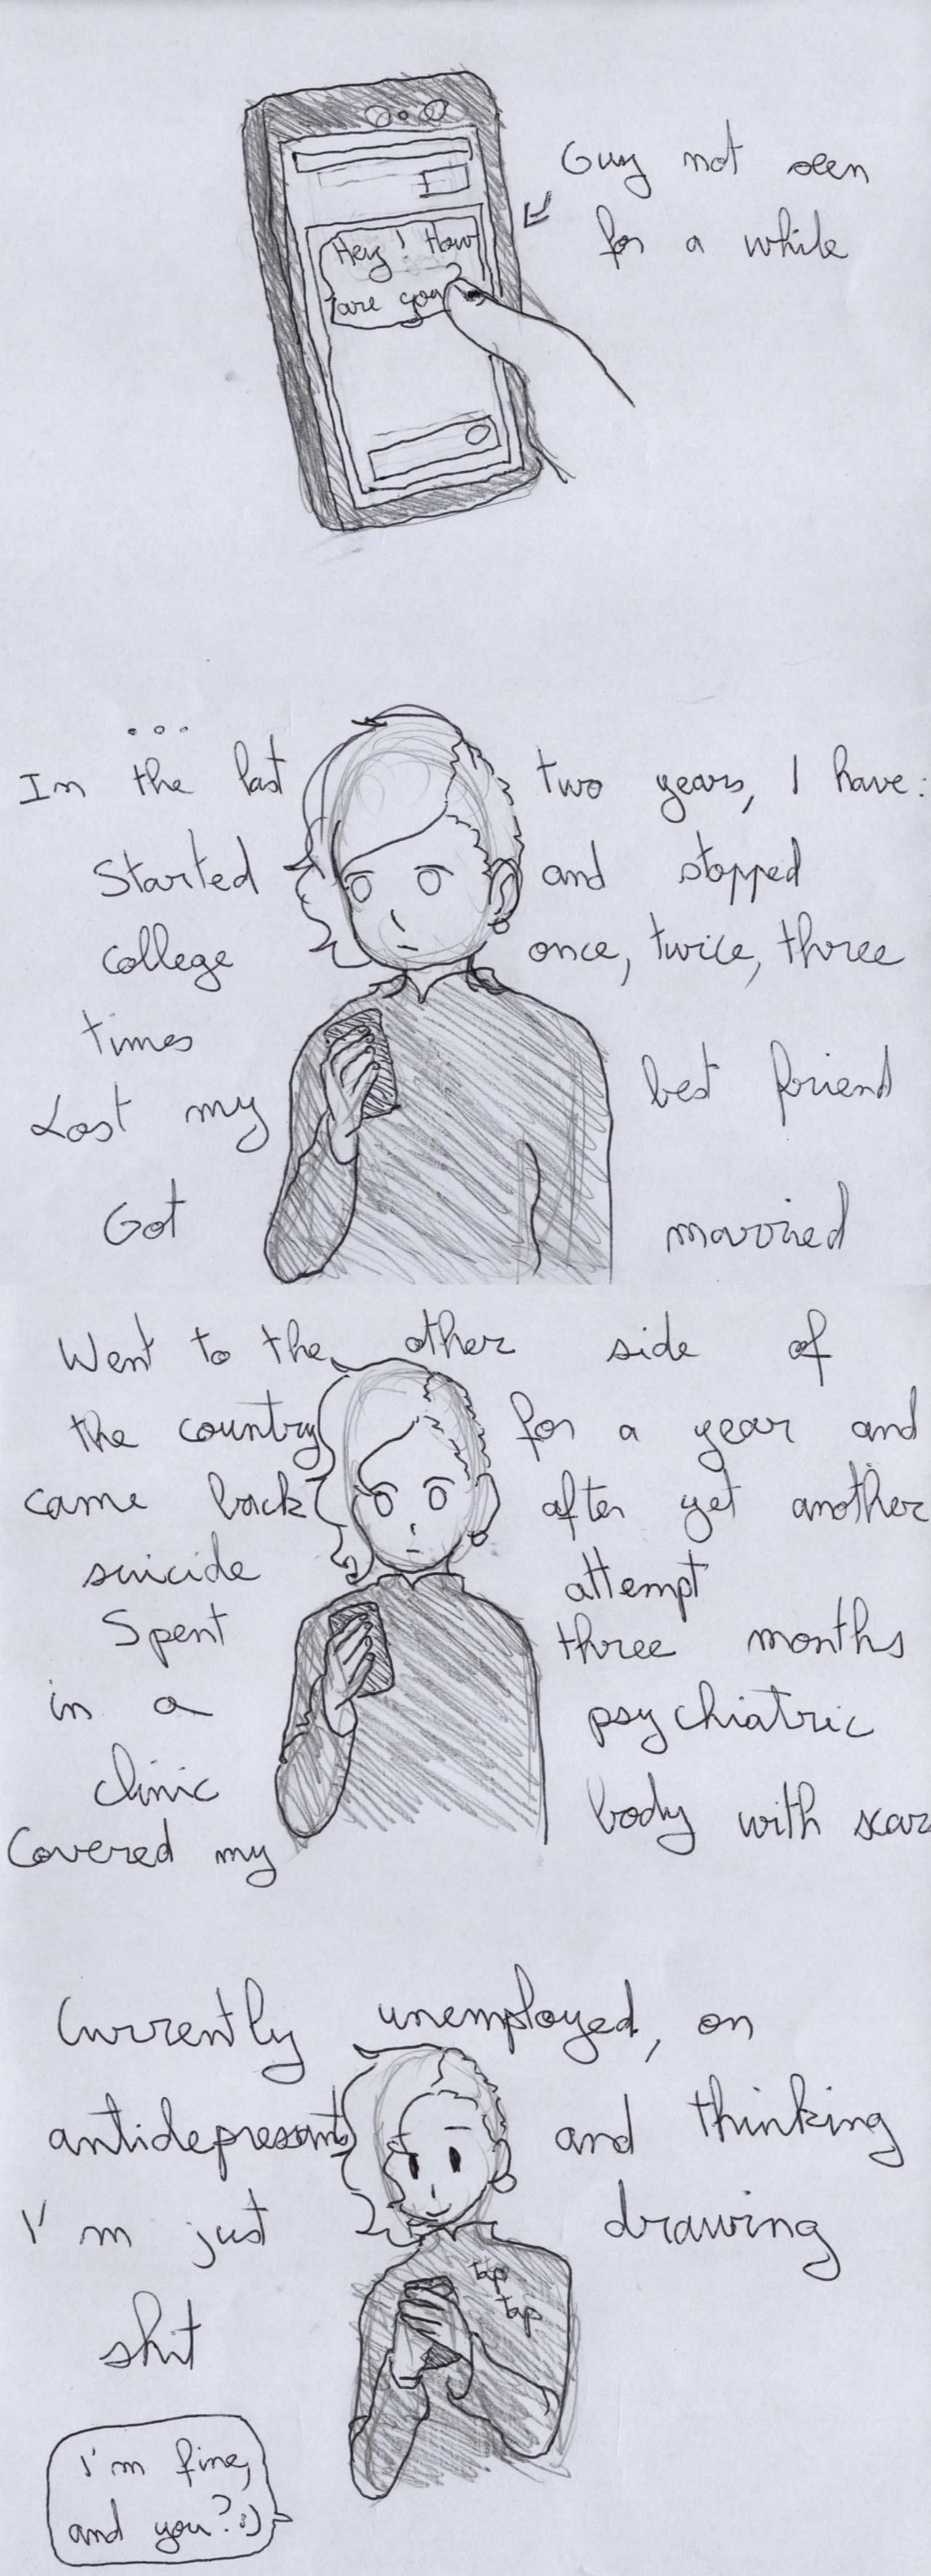 Guy not seen
for a while
Hey! How
are you?
...
In the last two years, I have:
Started and stopped
college once, twice, three
times
Lost my best friend
Got married
Went to the other side of
the country for a year and
came back after yet another
suicide attempt
Spent three months
in a psychiatric
clinic
Covered my body with scar
Currently unemployed, on
antidepressants and thinking
I'm just drawing
shit
tap
tap
I'm fine,
and you? :)